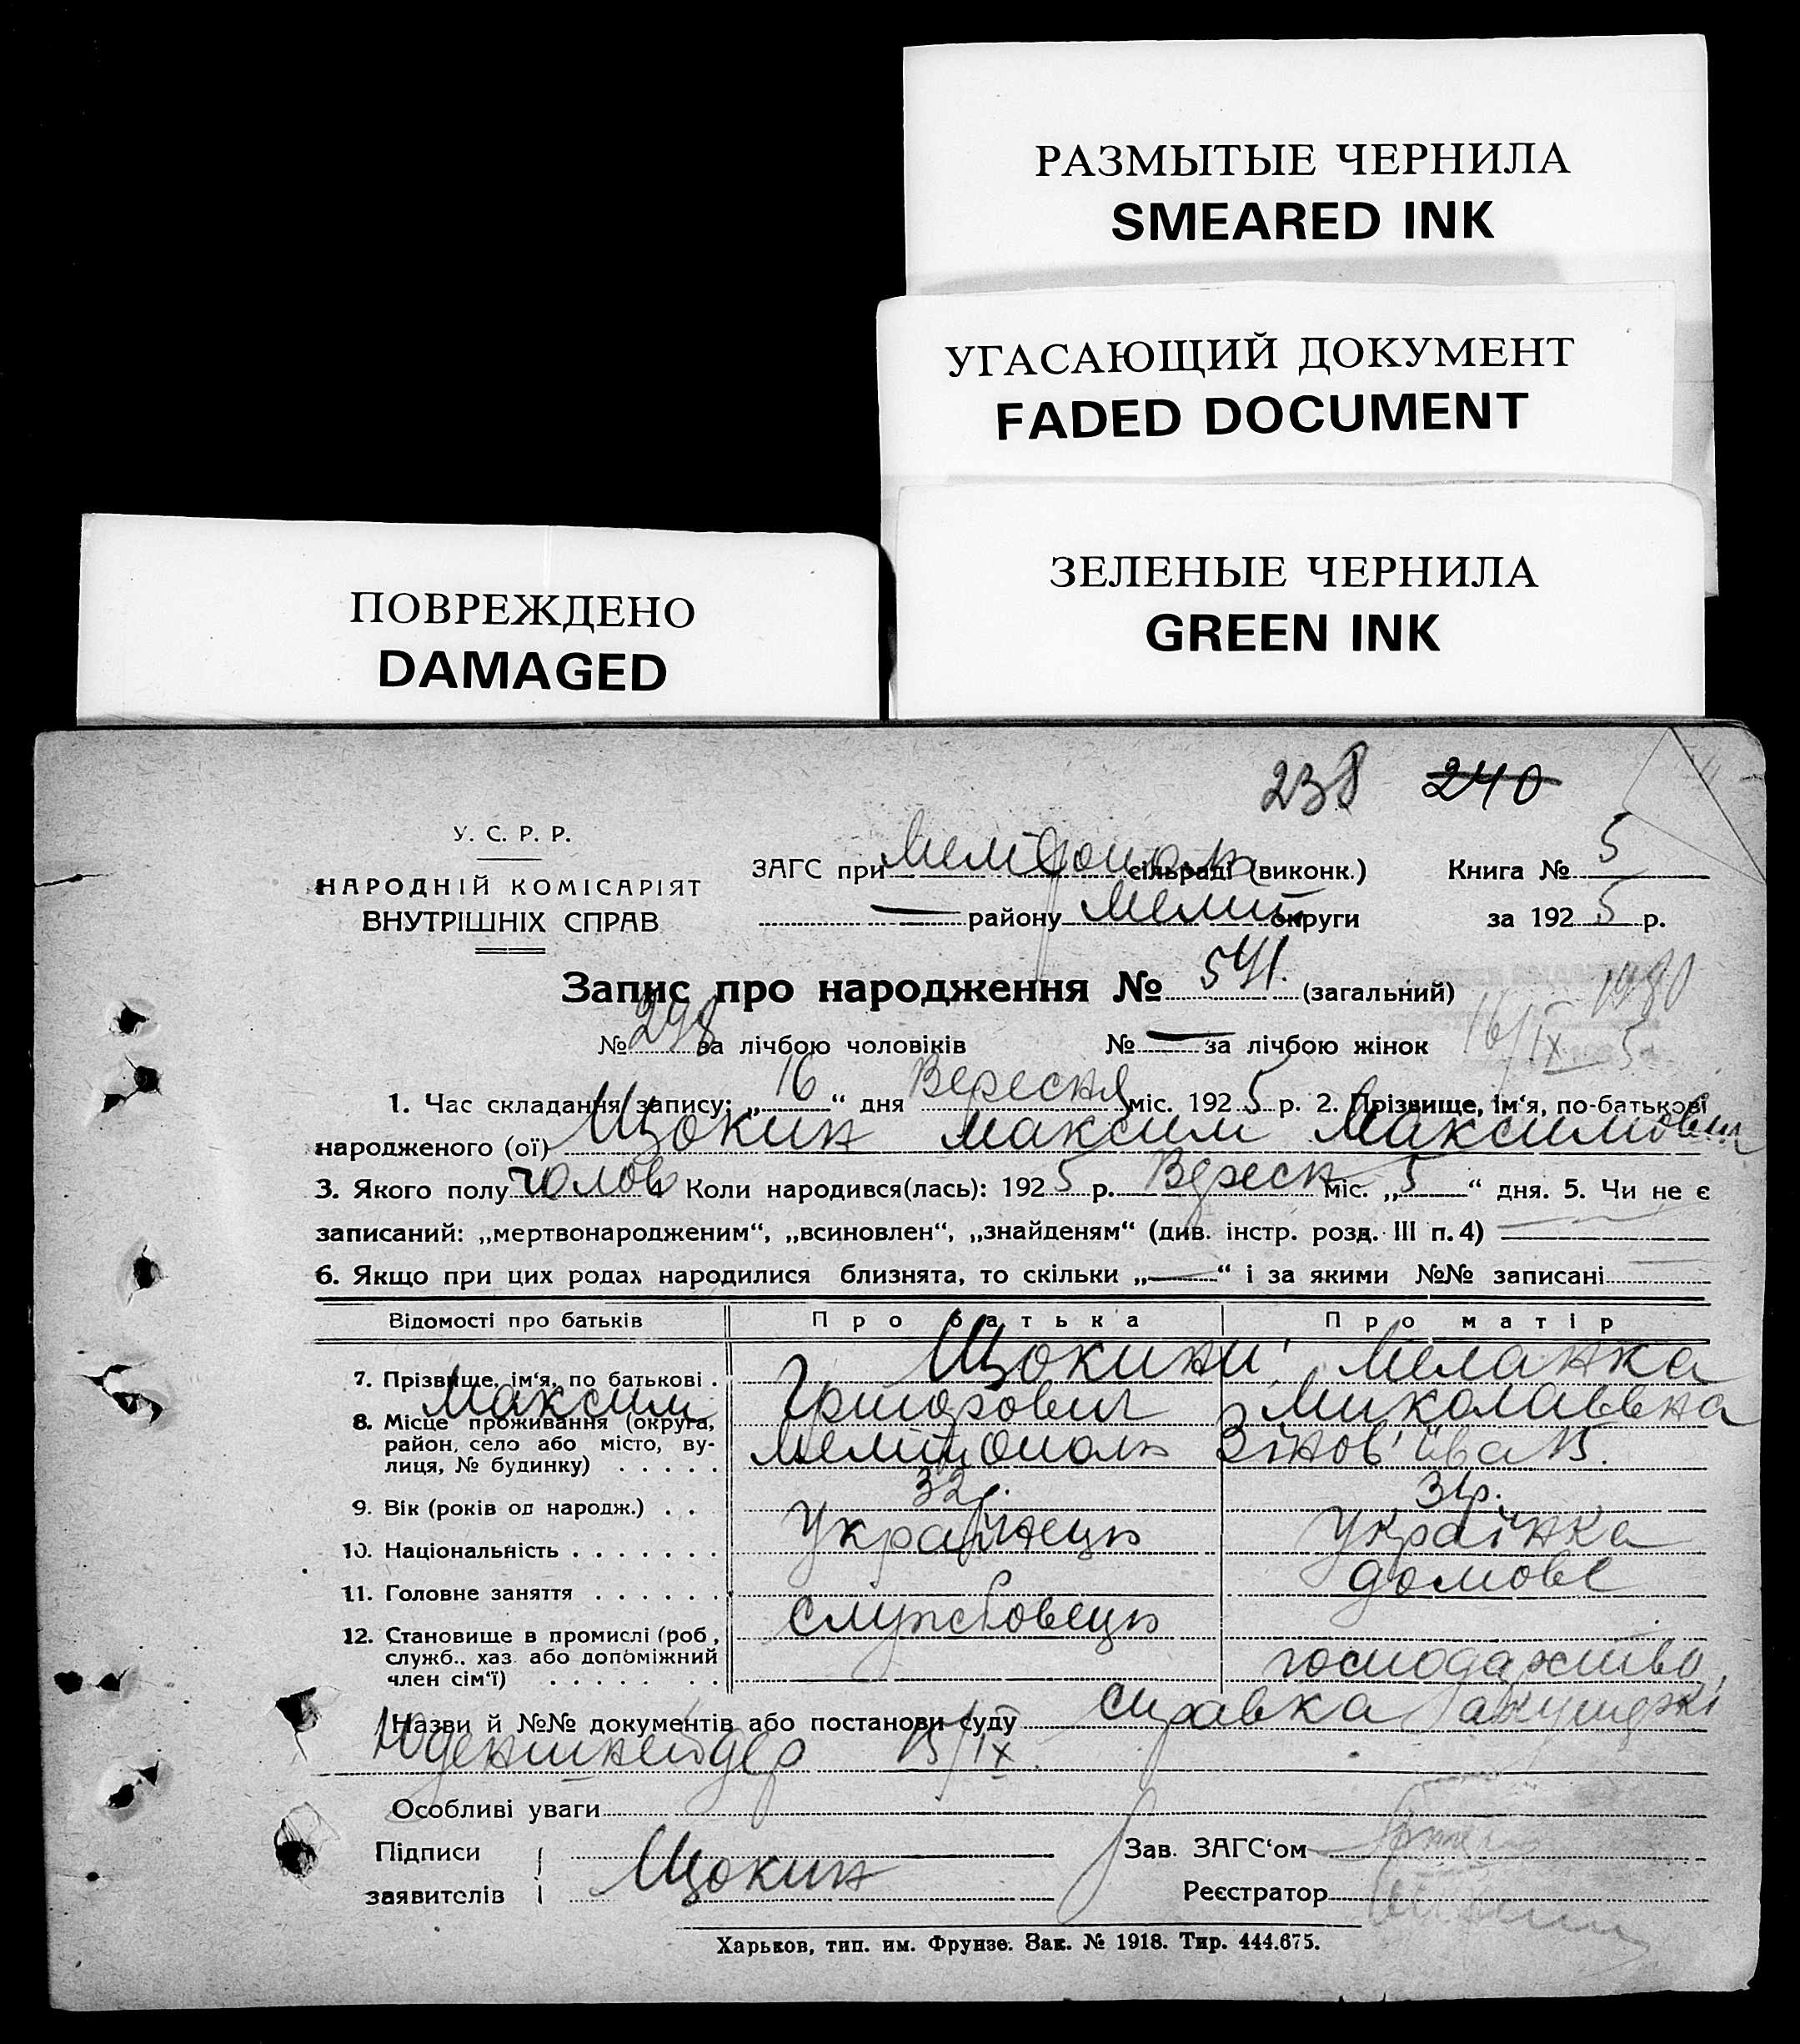 РАЗМЫТЫЕ ЧЕРНИЛА
SMEARED INK
УГАСАЮЩИЙ ДОКУМЕНТ
FADED DOCUMENT
ЗЕЛЕНЫЕ ЧЕРНИЛА
GREEN INK
ПОВРЕЖДЕНО
DAMAGED
238 240
У. С. Р. Р.
НАРОДНІЙ КОМІСАРІЯТ
ВНУТРІШНІХ СПРАВ
ЗАГС при Мелітополь сільраді (виконк.) Книга № 5
— району Меліт округи за 1925 р.
Запис про народження № 541. (загальний)
№ 298 за лічбою чоловіків № — за лічбою жінок 16/IX 5
1. Час складання запису: „16“ дня Вересня міс. 1925 р. 2. Прізвище, ім‘я, по-батькові
народженого (ої) Щокин Максим Максимович
3. Якого полу чолов 4 Коли народився(лась): 1925 р. Вересн міс. „5“ дня. 5. Чи не є
записаний: „мертвонародженим“, „всиновлен“, „знайденям“ (див. інстр. розд. III п. 4) —
6. Якщо при цих родах народилися близнята, то скільки „—“ і за якими №№ записані
Відомості про батьків Про батька Про матір
7. Прізвище, ім‘я, по батькові . Щокини: Меланка
Максим Григорович Миколаевна
8. Місце проживання (округа,
район, село або місто, ву-
лиця, № будинку) . . . . . Мелітополь Зінов'ива 15.
9. Вік (років од народж.) . . 32р. 31р.
10. Національність . . . . . . . Українець Українка
11. Головне заняття . . . . . . домове
службовець
12. Становище в промислі (роб.,
служб., хаз. або допоміжний
член сім‘ї) . . . . . . . господарство,
Назви й №№ документів або постанови суду справка акушеркі
Юденшнейдер 15/IX
Особливі уваги
Підписи
заявителів Щокин
Зав. ЗАГС‘ом
Реєстратор
Харьков, тип. им. Фрунзе. Зак. № 1918. Тир. 444.675.